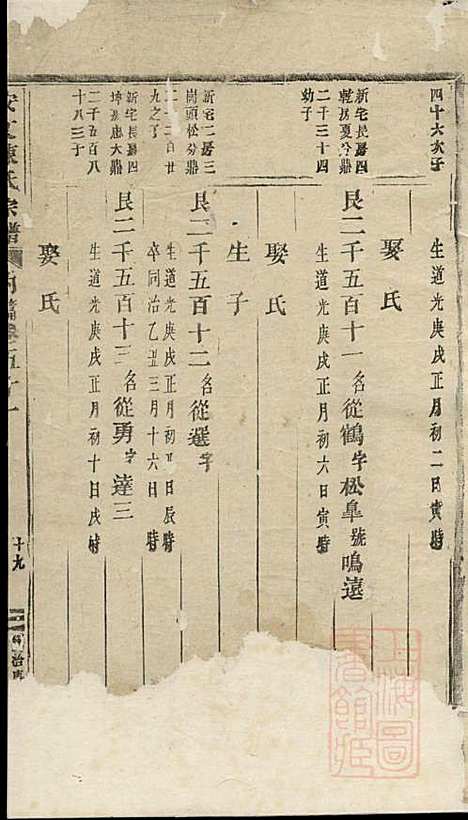 四十六次子
生道光庚戌正月初二日寅時
娶氏
新宅長房四
乾房夏分鼎
二千三十四
幼子
艮二千五百十一名從鶴字松臯號鳴遠
生道光庚戌正月初六日寅時
娶氏
新宅二房三
崗頭松分鼎
二千二百廿
九之子
生子
艮二千五百十二名從選字
生道光庚戌正月初五日辰時
卒同治乙丑三月十六日時
新宅長房四
坤房忠大鼎
二千五百八
十八三子
艮二千五百十三名從勇字達三
生道光庚戌正月初十日戌時
娶氏
陳氏宗譜
十九
上海圖
書館藏